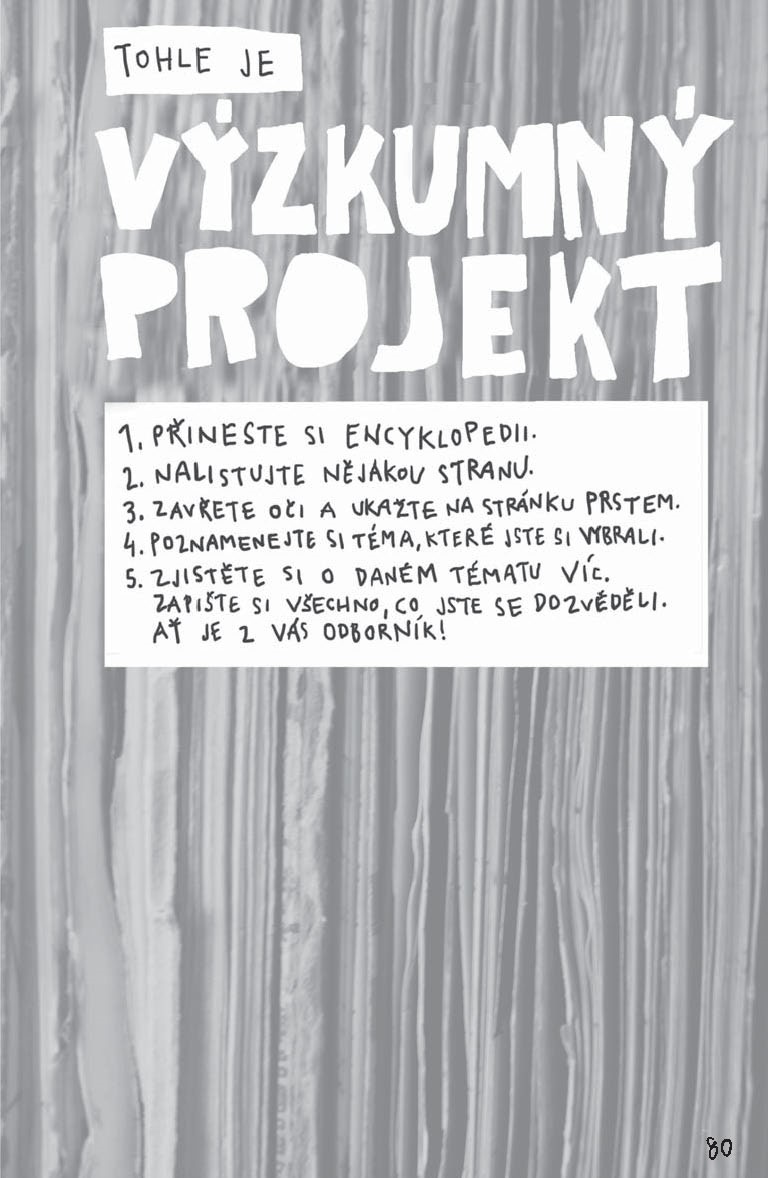 TOHLE JE
VÝZKUMNÝ
PROJEKT
1. PŘINESTE SI ENCYKLOPEDII.
2. NALISTUJTE NĚJAKOU STRANU.
3. ZAVŘETE OČI A UKAŽTE NA STRÁNKU PRSTEM.
4. POZNAMENEJTE SI TÉMA, KTERÉ JSTE SI VYBRALI.
5. ZJISTĚTE SI O DANÉM TÉMATU VÍC.
ZAPIŠTE SI VŠECHNO, CO JSTE SE DOZVĚDĚLI.
AŤ JE Z VÁS ODBORNÍK!
80